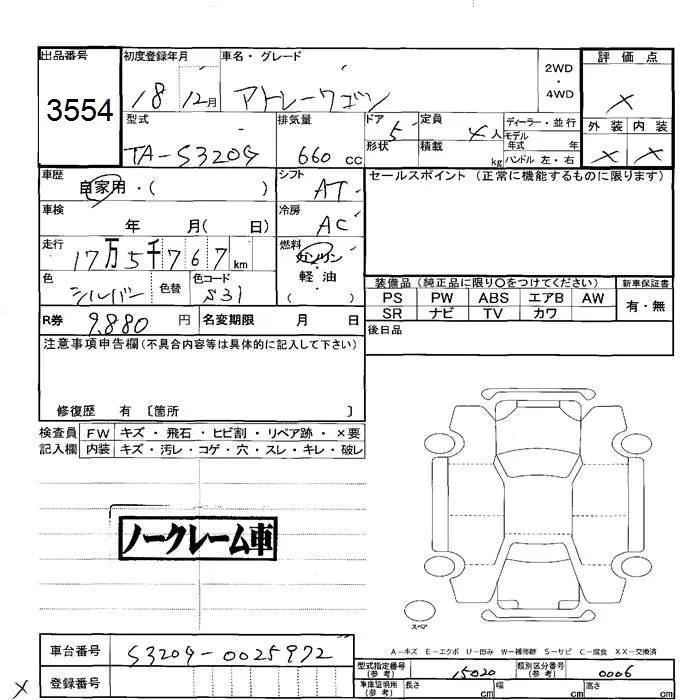 出品番号 初度登録年月 車名・グレード 2WD・4WD 評価点
3554 18 12月 アトレーワゴン ×
型式 排気量 ドア 5 定員 4人 ディーラー・並行 外装 内装
TA-S320G 660cc 形状 積載 kg モデル年式 年 ハンドル 左・右 × ×
車歴 自家用・( ) シフト AT セールスポイント(正常に機能するものに限ります)
車検 年 月( 日) 冷房 AC
走行 17万5千767km 燃料 ガソリン・軽油( )
色 シルバー 色替 色コード S31 装備品(純正品に限り○をつけてください) 新車保証書
PS PW ABS エアB AW 有・無
SR ナビ TV カワ
R券 9,880円 名変期限 月 日 後日品
注意事項申告欄(不具合内容等は具体的に記入して下さい)
修復歴 有 〔箇所 〕
検査員 FW キズ・飛石・ヒビ割・リペア跡・×要
記入欄 内装 キズ・汚レ・コゲ・穴・スレ・キレ・破レ
ノークレーム車
スペア
A-キズ E-エクボ U-凹み W-補修跡 S-サビ C-腐食 XX-交換済
車台番号 S320G-0025972 型式指定番号(参考) 15020 類別区分番号(参考) 0006
× 登録番号 車庫証明用(参考) 長さ cm 幅 cm 高さ cm